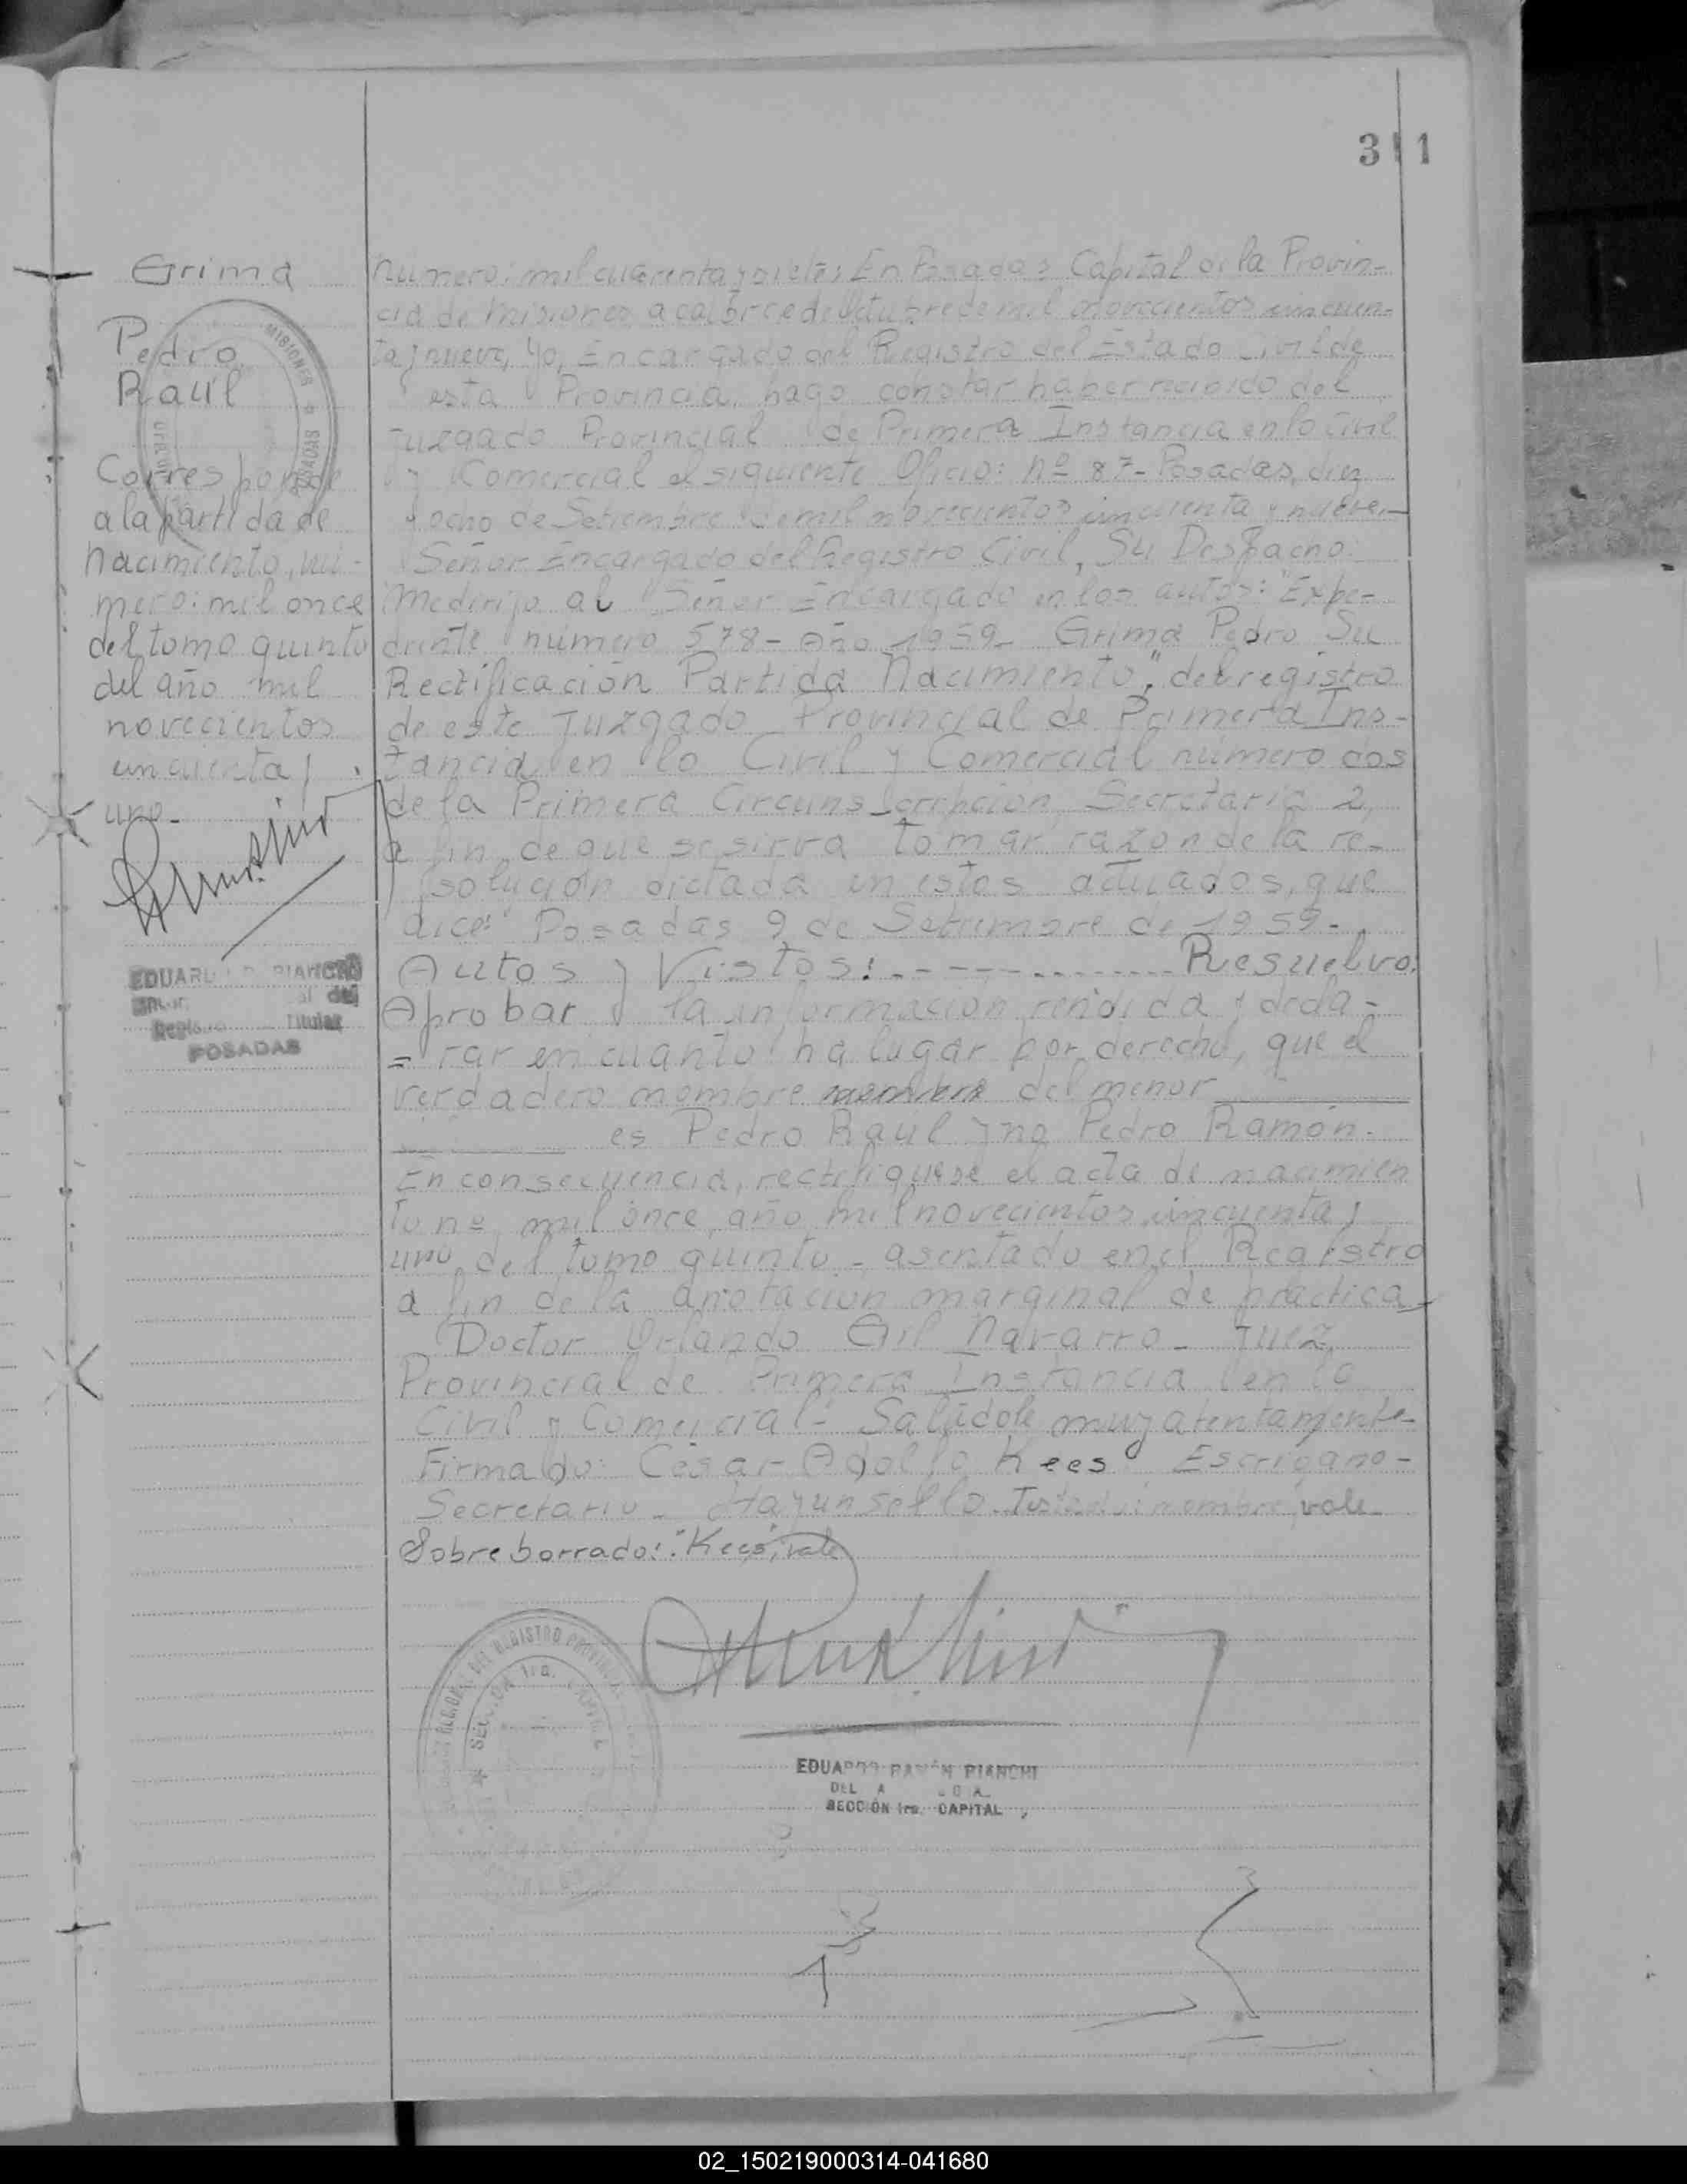 311
Grima
Pedro
Raúl
Corresponde
a la partida de
nacimiento, nú-
mero: mil once
del tomo quinto
del año mil
novecientos
cincuenta y
uno-
EDUARDO R. BIANCHI
Titular
POSADAS
MISIONES
POSADAS
Número: mil cuarenta y siete: En Posadas Capital de la Provin-
cia de Misiones a catorce de Octubre de mil novecientos cincuen-
ta y nueve, Yo, Encargado del Registro del Estado Civil de
esta Provincia, hago constar haber recibido del
Juzgado Provincial de Primera Instancia en lo Civil
y Comercial el siguiente Oficio: Nº 87- Posadas, diez
y ocho de Setiembre de mil novecientos cincuenta y nueve.-
Señor Encargado del Registro Civil, Su Despacho:
Me dirijo al Señor Encargado en los autos: "Expe-
diente número 578- Año 1959- Grima Pedro Su
Rectificación Partida Nacimiento", del registro
de este Juzgado Provincial de Primera Ins-
tancia en lo Civil y Comercial número dos
de la Primera Circuns_cripción, Secretaría 2,
a fin de que se sirva tomar razón de la re-
solución dictada en estos actuados, que
dice: "Posadas 9 de Setiembre de 1959-.
Autos y Vistos:.------------Resuelvo:
Aprobar la información rendida y decla-
=rar en cuanto ha lugar por derecho, que el
verdadero nombre nombre del menor
es Pedro Raúl y no Pedro Ramón.
En consecuencia, rectifíquese el acta de nacimien
to nº mil once año mil novecientos cincuenta y
uno del tomo quinto - asentado en el Registro
a fin de la anotación marginal de práctica-
Doctor Orlando Gil Navarro- Juez
Provincial de Primera Instancia en lo
Civil y Comercial- Salúdole muy atentamente-
Firmado: César Adolfo Kees Escribano-
Secretario- Hay un sello- Testado: nombre, vale
Sobre borrado: "Kees", vale
SECCION 1ra. CAPITAL
EDUARDO RAMÓN BIANCHI
SECCIÓN 1ra. CAPITAL
02_150219000314-041680